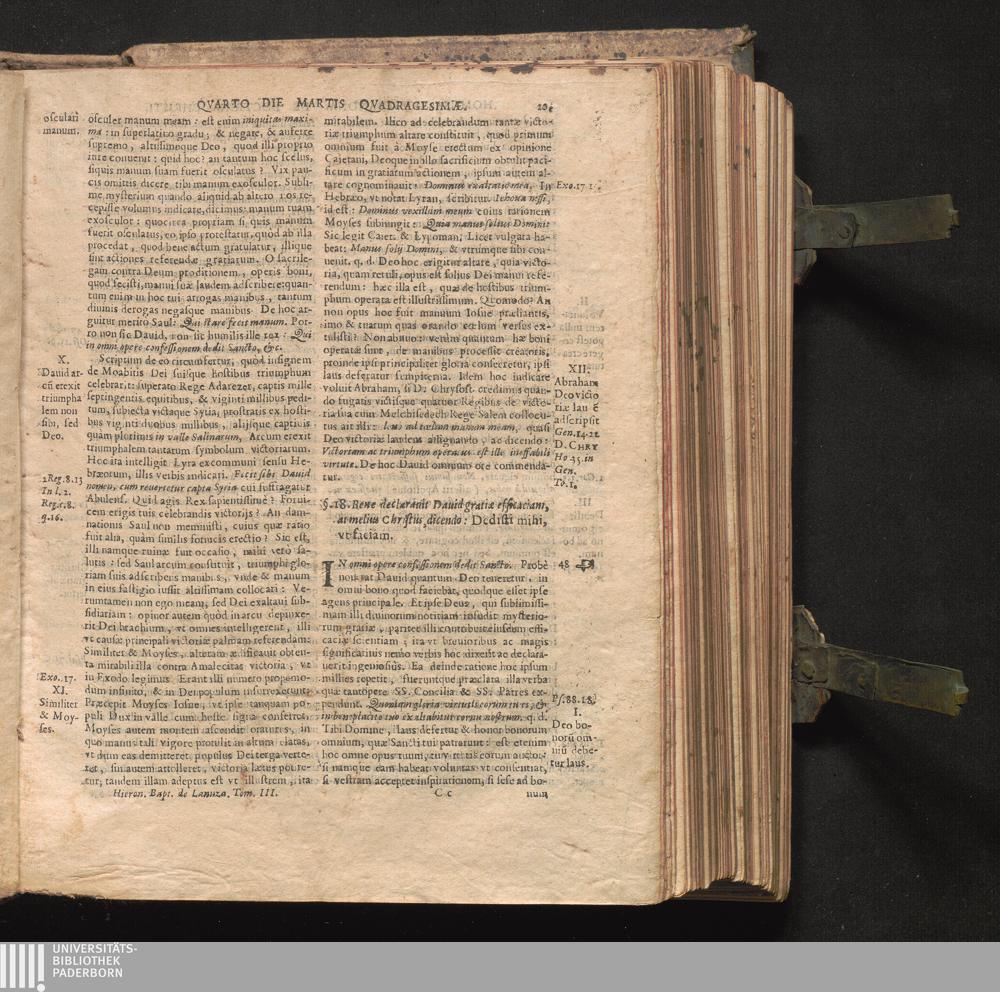 QVARTO DIE MARTIS QVADRAGESIMÆ.
osculari
manum.
osculer manum meam : est enim iniquitas maxi-
ma : in superlatiuo gradu; & negare, & auferre
supremo, altissimoque Deo, quod illi proprio
iure conuenit : quid hoc? an tantum hoc scelus,
siquis manum suam fuerit osculatus ? Vix pau-
cis omittis dicere, tibi manum exosculor. Subli-
me mysterium quando aliquid ab altero nos re-
cepisse volumus indicare, dicimus: manum tuam
exosculor : quocirca propriam si quis manum
fuerit osculatus, eo ipso protestatur, quod ab illa
procedat, quod bene actum gratulatur, illique
sint actiones referendæ gratiarum. O sacrile-
gam contra Deum proditionem, operis boni,
quod fecisti, manui suæ laudem adscribere: quan-
tum enim in hoc tui arrogas manibus, tantum
diuinis derogas negasque manibus. De hoc ar-
guitur merito Saul: Qui stare fecit manum. Por-
ro non sic David, non sic humilis ille rex : Qui
in omni opere confessionem dedit Sancto, &c.
X.
Dauid ar-
cū erexit
triumpha
lem non
sibi, sed
Deo.
Scriptum de eo circumfertur, quod insignem
de Moabitis Dei suisque hostibus triumphum
celebrarit: superato Rege Adarezer, captis mille
septingentis equitibus, & viginti millibus pedi-
tum, subiecta victaque Syria, prostratis ex hosti-
bus viginti duobus millibus, alijsque captiuis
quam plurimis in valle Salinarum, Arcum erexit
triumphalem tantarum symbolum victoriarum.
Hoc ita intelligit Lyra excommuni sensu He-
bræorum, illis verbis indicari. Fecit sibi Dauid
nomen, cum reuertetur capta Syria cui suffragatur
2 Reg. 8. 13
In l. 2.
Reg. c. 8.
q. 16.
Abulens. Quid agis Rex sapientissime ? Forni-
cem erigis tuis celebrandis victorijs ? An dam-
nationis Saul non meministi, cuius quæ ratio
fuit alia, quam similis fornicis erectio ? Sic est,
illi namque ruinæ fuit occasio, mihi vero sa-
lutis : sed Saul arcum constituit, triumphi glo-
riam suis adscribens manibus, vnde & manum
in eius fastigio iussit altissimam collocari : Ve-
rumtamen non ego meam, sed Dei exaltaui sub-
sidiariam : opinor autem quod in arcu depinxe-
rit Dei brachium, vt omnes intelligerent, illi
vt causæ principali victoriæ palmam referendam:
Similiter & Moyses, altare ædificauit obten-
ta mirabili illa contra Amalecitas victoria, vt
Exo. 17.
XI.
Similiter
& Moy-
ses.
in Exodo legimus. Erant illi numero propemo-
dum infinito, & in Dei populum insurrexerunt:
Præcepit Moyses Iosue, vt ipse tanquam po-
puli Dux in valle cum hoste signa conferret,
Moyses autem montem ascendit oraturus, in
quo manus tali vigore protulit in altum elatas,
vt dum eas demitteret populus Dei terga verte-
ret, sin autem attolleret, victoria lætus potire-
tur; tandem illam adeptus est vt illustrem, ita
Hieron. Bapt. de Lanuza. Tom. III.
mirabilem. Ilico ad celebrandum tantæ victo-
riæ triumphum altare constituit, quod primum
omnium fuit à Moyse erectum ex opinione
Cajetani, Deoque in illo sacrificium obtulit paci-
ficum in gratiarum actionem, ipsum autem al-
tare cognominauit: Dominus exaltatio mea, In
Exo. 17 1
Hebræo, vt notat Lyran, scribitur. Iehoua nissi,
id est : Dominus vexillum meum cuius rationem
Moyses subiungit : Quia manus solius Domini:
Sic legit Caiet. & Lypoman. Licet vulgata ha-
beat: Manus solij Domini, & vtrumque sibi con-
uenit. q. d. Deo hoc erigitur altare, quia victo-
ria, quam retuli, opus est solius Dei manui refe-
rendum : hæc illa est, quæ de hostibus trium-
phum operata est illustrissimum. Quomodo? An
non opus hoc fuit manuum Iosue præliantis,
imo & tuarum quas orando cœlum versus ex-
tulisti? Non abnuo : verùm quantum hæ boni
operatæ sint, de manibus processit creatoris,
proinde ipsi principaliter gloria consecretur, ipsi
laus deferatur sempiterna. Idem hoc indicare
XII.
Abraham
Deo victo
riæ laudē
adscripsit
Gen. 14. 22
D. CHRY
Ho 45. in
Gen.
To. 1.
voluit Abraham, si D. Chrysost. credimus quan-
do fugatis victisque quatuor Regibus de victo-
ria sua cum Melchisedech Rege Salem collocu-
tus ait illi: leuo ad cœlum manum meam, quasi
Deo victoriæ laudem assignando, ac dicendo:
Victoriam ac triumphum operatus est ille ineffabili
virtute. De hoc Dauid omnium ore commenda-
tur.
§. 18. Bene declarauit Dauid gratiæ efficaciam,
at melius Christus, dicendo : Dedisti mihi,
vt faciam.
48
IN omni opere confessionem dedit Sancto. Probè
norat Dauid quantum Deo teneretur, in
omni bono quod faciebat, quodque esset ipse
agens principale. Et ipse Deus, qui sublimissi-
mam illi diuinorum notitiam infudit mysterio-
rum gratiæ, pariter illi contribuit eiusdem effi-
caciæ scientiam ; ita vt breuioribus ac magis
significatiuis nemo verbis hoc dixerit ac declara-
uerit ingeniosius. Ea deinde ratione hoc ipsum
millies repetit, fueruntque præclara illa verba
quæ tantopere SS. Concilia & SS. Patres ex-
pendunt. Quoniam gloria virtutis eorum tu es, &
Ps. 88. 18.
I.
Deo bo-
norū om-
niū debe-
tur laus.
in beneplacito tuo exaltabitur cornu nostrum. q. d.
Tibi Domine, laus defertur & honor bonorum
omnium, quæ Sancti tui patrarunt : est etenim
hoc omne opus tuum, tu virtutis eorum auctor :
si namque eam habeat voluntas vt consentiat,
si vestram acceptet inspirationem, si sese ad bo-
C c
num
UNIVERSITÄTS-
BIBLIOTHEK
PADERBORN